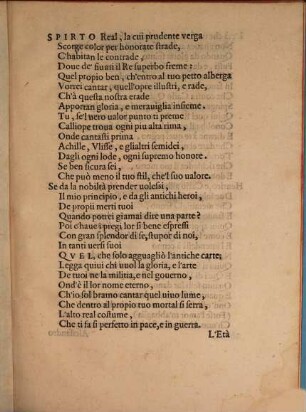 SPIRTO Real, la cui prudente verga
Scorge color per honorate strade,
C'habitan le contrade,
Doue de' fiumi il Re superbo freme:
Quel proprio ben, ch'entro al tuo petto alberga
Vorrei cantar, quell'opre illustri, e rade,
Ch'à questa nostra etade
Apportan gloria, e merauiglia insieme.
Tu, se'l vero valor punto ti preme
Calliope troua ogni piu alta rima,
Onde cantasti prima
Achille, Vlisse, e gli altri semidei,
Dagli ogni lode, ogni supremo honore.
Se ben sicura sei,
Che può meno il tuo stil, che'l suo valore.
Se da la nobiltà prender uolessi,
Il mio principio, e da gli antichi heroi,
De propij merti tuoi
Quando potrei giamai dire una parte?
Poi c'haue i pregi lor sì bene espressi
Con gran splendor di se, stupor di noi,
In tanti uersi suoi
QVEL, che solo agguagliò l'antiche carte;
Legga quiui chi vuol la gloria, e l'arte
De tuoi ne la militia, e nel gouerno,
Ond'è il lor nome eterno,
Ch'io sol bramo cantar quel uiuo lume,
Che dentro al propio tuo mortal si serra,
L'alto real costume,
Che ti fa sì perfetto in pace, e in guerra.
L'Età